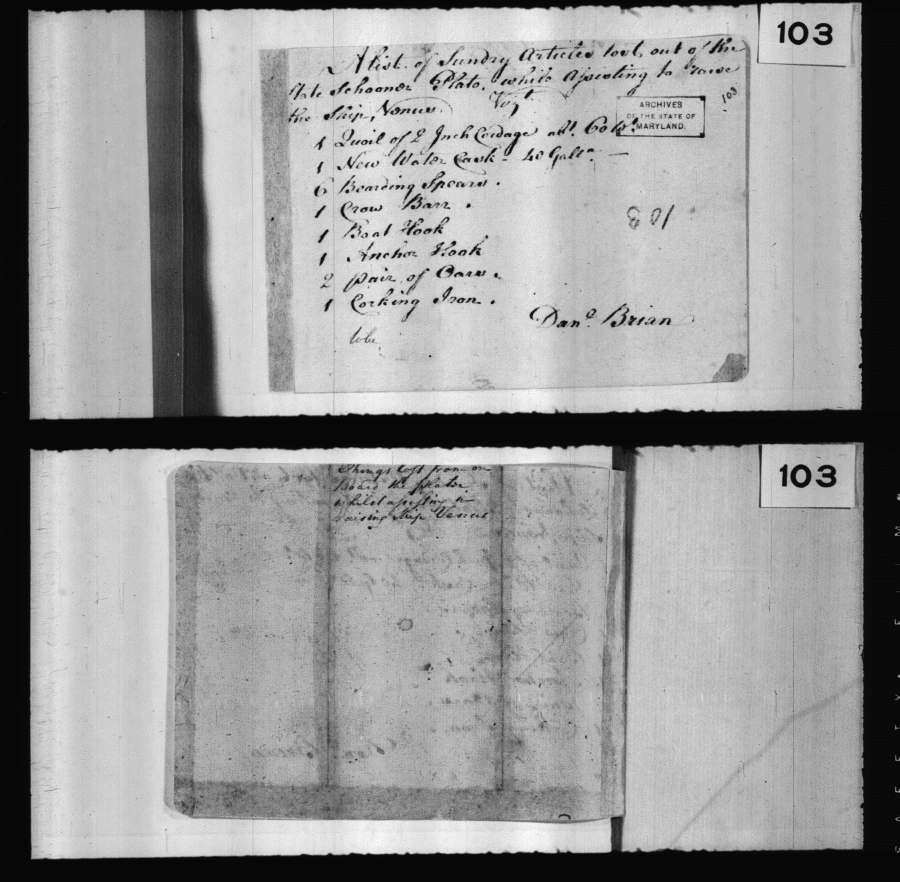 103
A list of Sundry Articles lost out of the
State Schooner Plato, while Assisting to raise
the Ship, Venus. Vizt.
103
ARCHIVES
OF THE STATE OF
MARYLAND.
1 Quoil of 2 Inch Cordage abt.
1 New Water Cask - 40 Galln. —
6 Boarding Spears.
1 Crow Barr.
1 Boat Hook
1 Anchor Hook
2 pair of Oars.
1 Corking Iron.
103
Danl. Brian
103
Things lost from on
Board the Plato
whilst assisting in
raising Ship Venus